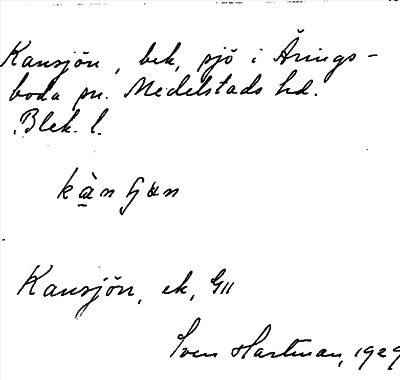 Kansjön, bek, sjö i Årings-
boda sn. Medelstads hd.
Blek. l.
Kansjön, ek, GII
Sven Hartman, 1929